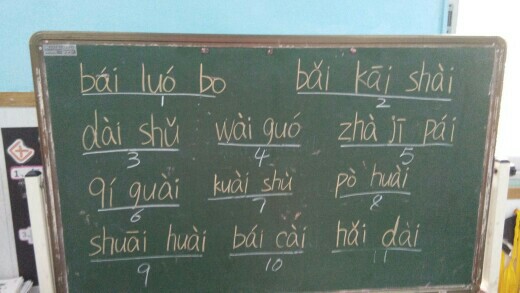 bái luó bo bǎi kāi shài
1 2
dài shǔ wài guó zhà jī pái
3 4 5
qí guài kuài shù pò huài
6 7 8
shuāi huài bái cài hǎi dài
9 10 11